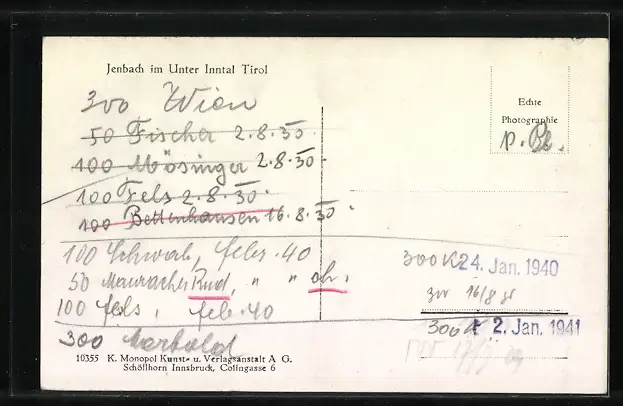 Jenbach im Unter Inntal Tirol
300 Wien
50 Fischer 2.8.30.
100 Mösinger 2.8.30.
100 Fels 2.8.30.
100 Bettenhausen 16.8.30.
100 Schwab, febr. 40
50 Mauracher Rud, " "
100 fels, feb. 40
300
10355 K. Monopol Kunst- u. Verlagsanstalt A G.
Schöllhorn Innsbruck, Colingasse 6
Echte
Photographie
300 K 24. Jan. 1940
300 16/8
300 2. Jan. 1941